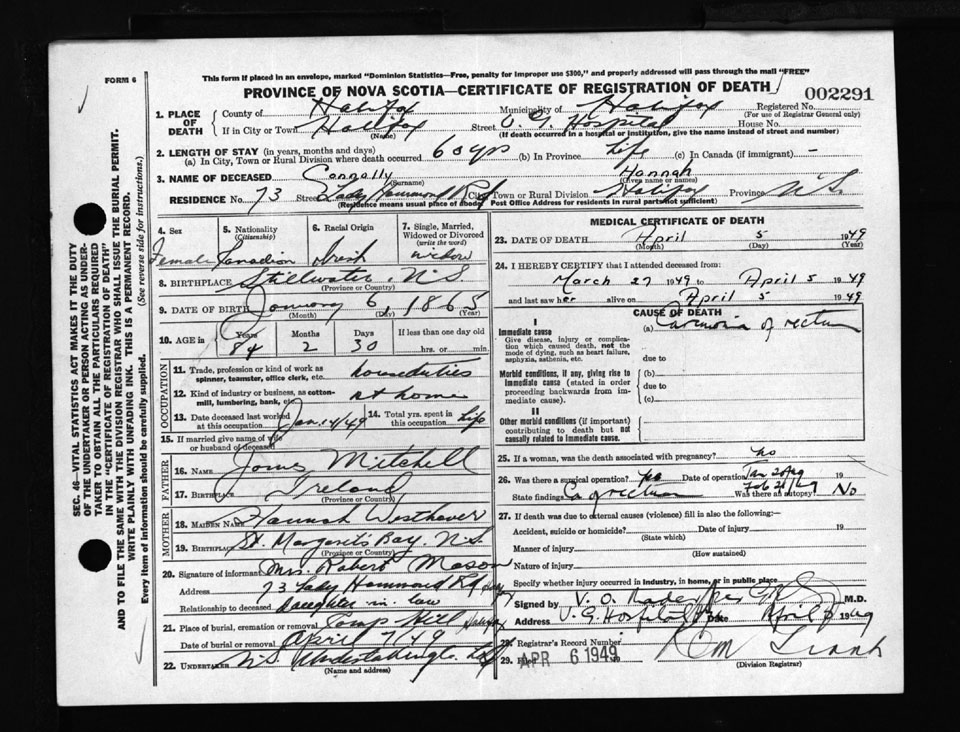 FORM 6
This form if placed in an envelope, marked "Dominion Statistics—Free, penalty for improper use $300," and properly addressed will pass through the mail "FREE"
PROVINCE OF NOVA SCOTIA—CERTIFICATE OF REGISTRATION OF DEATH
002291
1. PLACE OF DEATH
County of Halifax Municipality of Halifax Registered No.
(For use of Registrar General only)
If in City or Town Halifax Street V. G. Hospital House No.
(Name) (If death occurred in a hospital or institution, give the name instead of street and number)
2. LENGTH OF STAY (in years, months and days)
(a) In City, Town or Rural Division where death occurred 60 yrs (b) In Province Life (c) In Canada (if immigrant) -
3. NAME OF DECEASED Connolly Hannah
(Surname) (Given name or names)
RESIDENCE No. 73 Street Lady Hammond Rd City Town or Rural Division Halifax Province N.S.
(Residence means usual place of abode) Post Office Address for residents in rural parts not sufficient)
4. Sex
Female
5. Nationality
(Citizenship)
Canadian
6. Racial Origin
Irish
7. Single, Married, Widowed or Divorced
(write the word)
widow
8. BIRTHPLACE Stillwater, N.S.
(Province or Country)
9. DATE OF BIRTH January 6 1865
(Month) (Day) (Year)
10. AGE in Years Months Days If less than one day old
84 2 30 hrs. or min.
OCCUPATION
11. Trade, profession or kind of work as spinner, teamster, office clerk, etc. houseduties
12. Kind of industry or business, as cotton-mill, lumbering, bank, etc. at home
13. Date deceased last worked at this occupation Jan. 14/49
14. Total yrs. spent in this occupation Life
15. If married give name of wife or husband of deceased
FATHER
16. NAME James Mitchell
17. BIRTHPLACE Ireland
(Province or Country)
MOTHER
18. MAIDEN NAME Hannah Westhaver
19. BIRTHPLACE St. Margarets Bay, N.S.
(Province or Country)
20. Signature of informant Mrs. Robert Mason
Address 73 Lady Hammond Rd
Relationship to deceased daughter-in-law
21. Place of burial, cremation or removal Camp Hill Halifax
Date of burial or removal April 7/49
22. UNDERTAKER N.S. Undertaking Co. Ltd
(Name and address)
MEDICAL CERTIFICATE OF DEATH
23. DATE OF DEATH April 5 1949
(Month) (Day) (Year)
24. I HEREBY CERTIFY that I attended deceased from:
March 27 1949 to April 5 1949
and last saw her alive on April 5 1949
CAUSE OF DEATH
I
Immediate cause
Give disease, injury or complication which caused death, not the mode of dying, such as heart failure, asphyxia, asthenia, etc.
(a) Carcinoma of rectum
due to
Morbid conditions, if any, giving rise to immediate cause (stated in order proceeding backwards from immediate cause).
(b)
due to
(c)
II
Other morbid conditions (if important) contributing to death but not causally related to immediate cause.
25. If a woman, was the death associated with pregnancy? no
26. Was there a surgical operation? Date of operation Jan 20/49 19
Feb 21/49
State findings Ca of rectum Was there an autopsy? No
27. If death was due to external causes (violence) fill in also the following:
Accident, suicide or homicide? Date of injury 19
(State which)
Manner of injury
(How sustained)
Nature of injury
Specify whether injury occurred in industry, in home, or in public place
Signed by V. O. Mader M.D.
Address V. G. Hospital Date April 1949
28. Registrar's Record Number
29. Filed APR 6 1949
(Division Registrar)
SEC. 46—VITAL STATISTICS ACT MAKES IT THE DUTY OF THE UNDERTAKER OR PERSON ACTING AS UNDERTAKER TO OBTAIN ALL THE PARTICULARS REQUIRED IN THE "CERTIFICATE OF REGISTRATION OF DEATH" AND TO FILE THE SAME WITH THE DIVISION REGISTRAR WHO SHALL ISSUE THE BURIAL PERMIT.
WRITE PLAINLY WITH UNFADING INK. THIS IS A PERMANENT RECORD.
Every item of information should be carefully supplied. (See reverse side for instructions.)